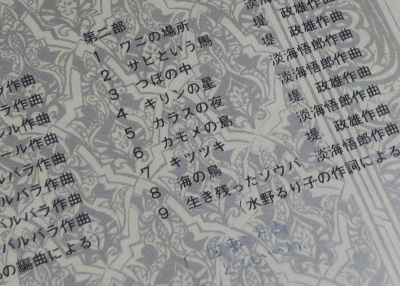 第二部
1 ワニの場所 淡海悟郎作曲
2 サビという馬 堤 政雄作曲
3 つぼの中 堤 政雄作曲
4 キリンの星 淡海悟郎作曲
5 カラスの夜 淡海悟郎作曲
6 カモメの島 淡海悟郎作曲
7 キツツキ 堤 政雄作曲
8 海の鳥 堤 政雄作曲
9 生き残ったソウバ、 淡海悟郎作曲
(水野るり子の作詞による
作曲
ラ作曲
ール作曲
ール作曲
バラ作曲
バルバラ作曲
バルバラ作曲
の編曲による)